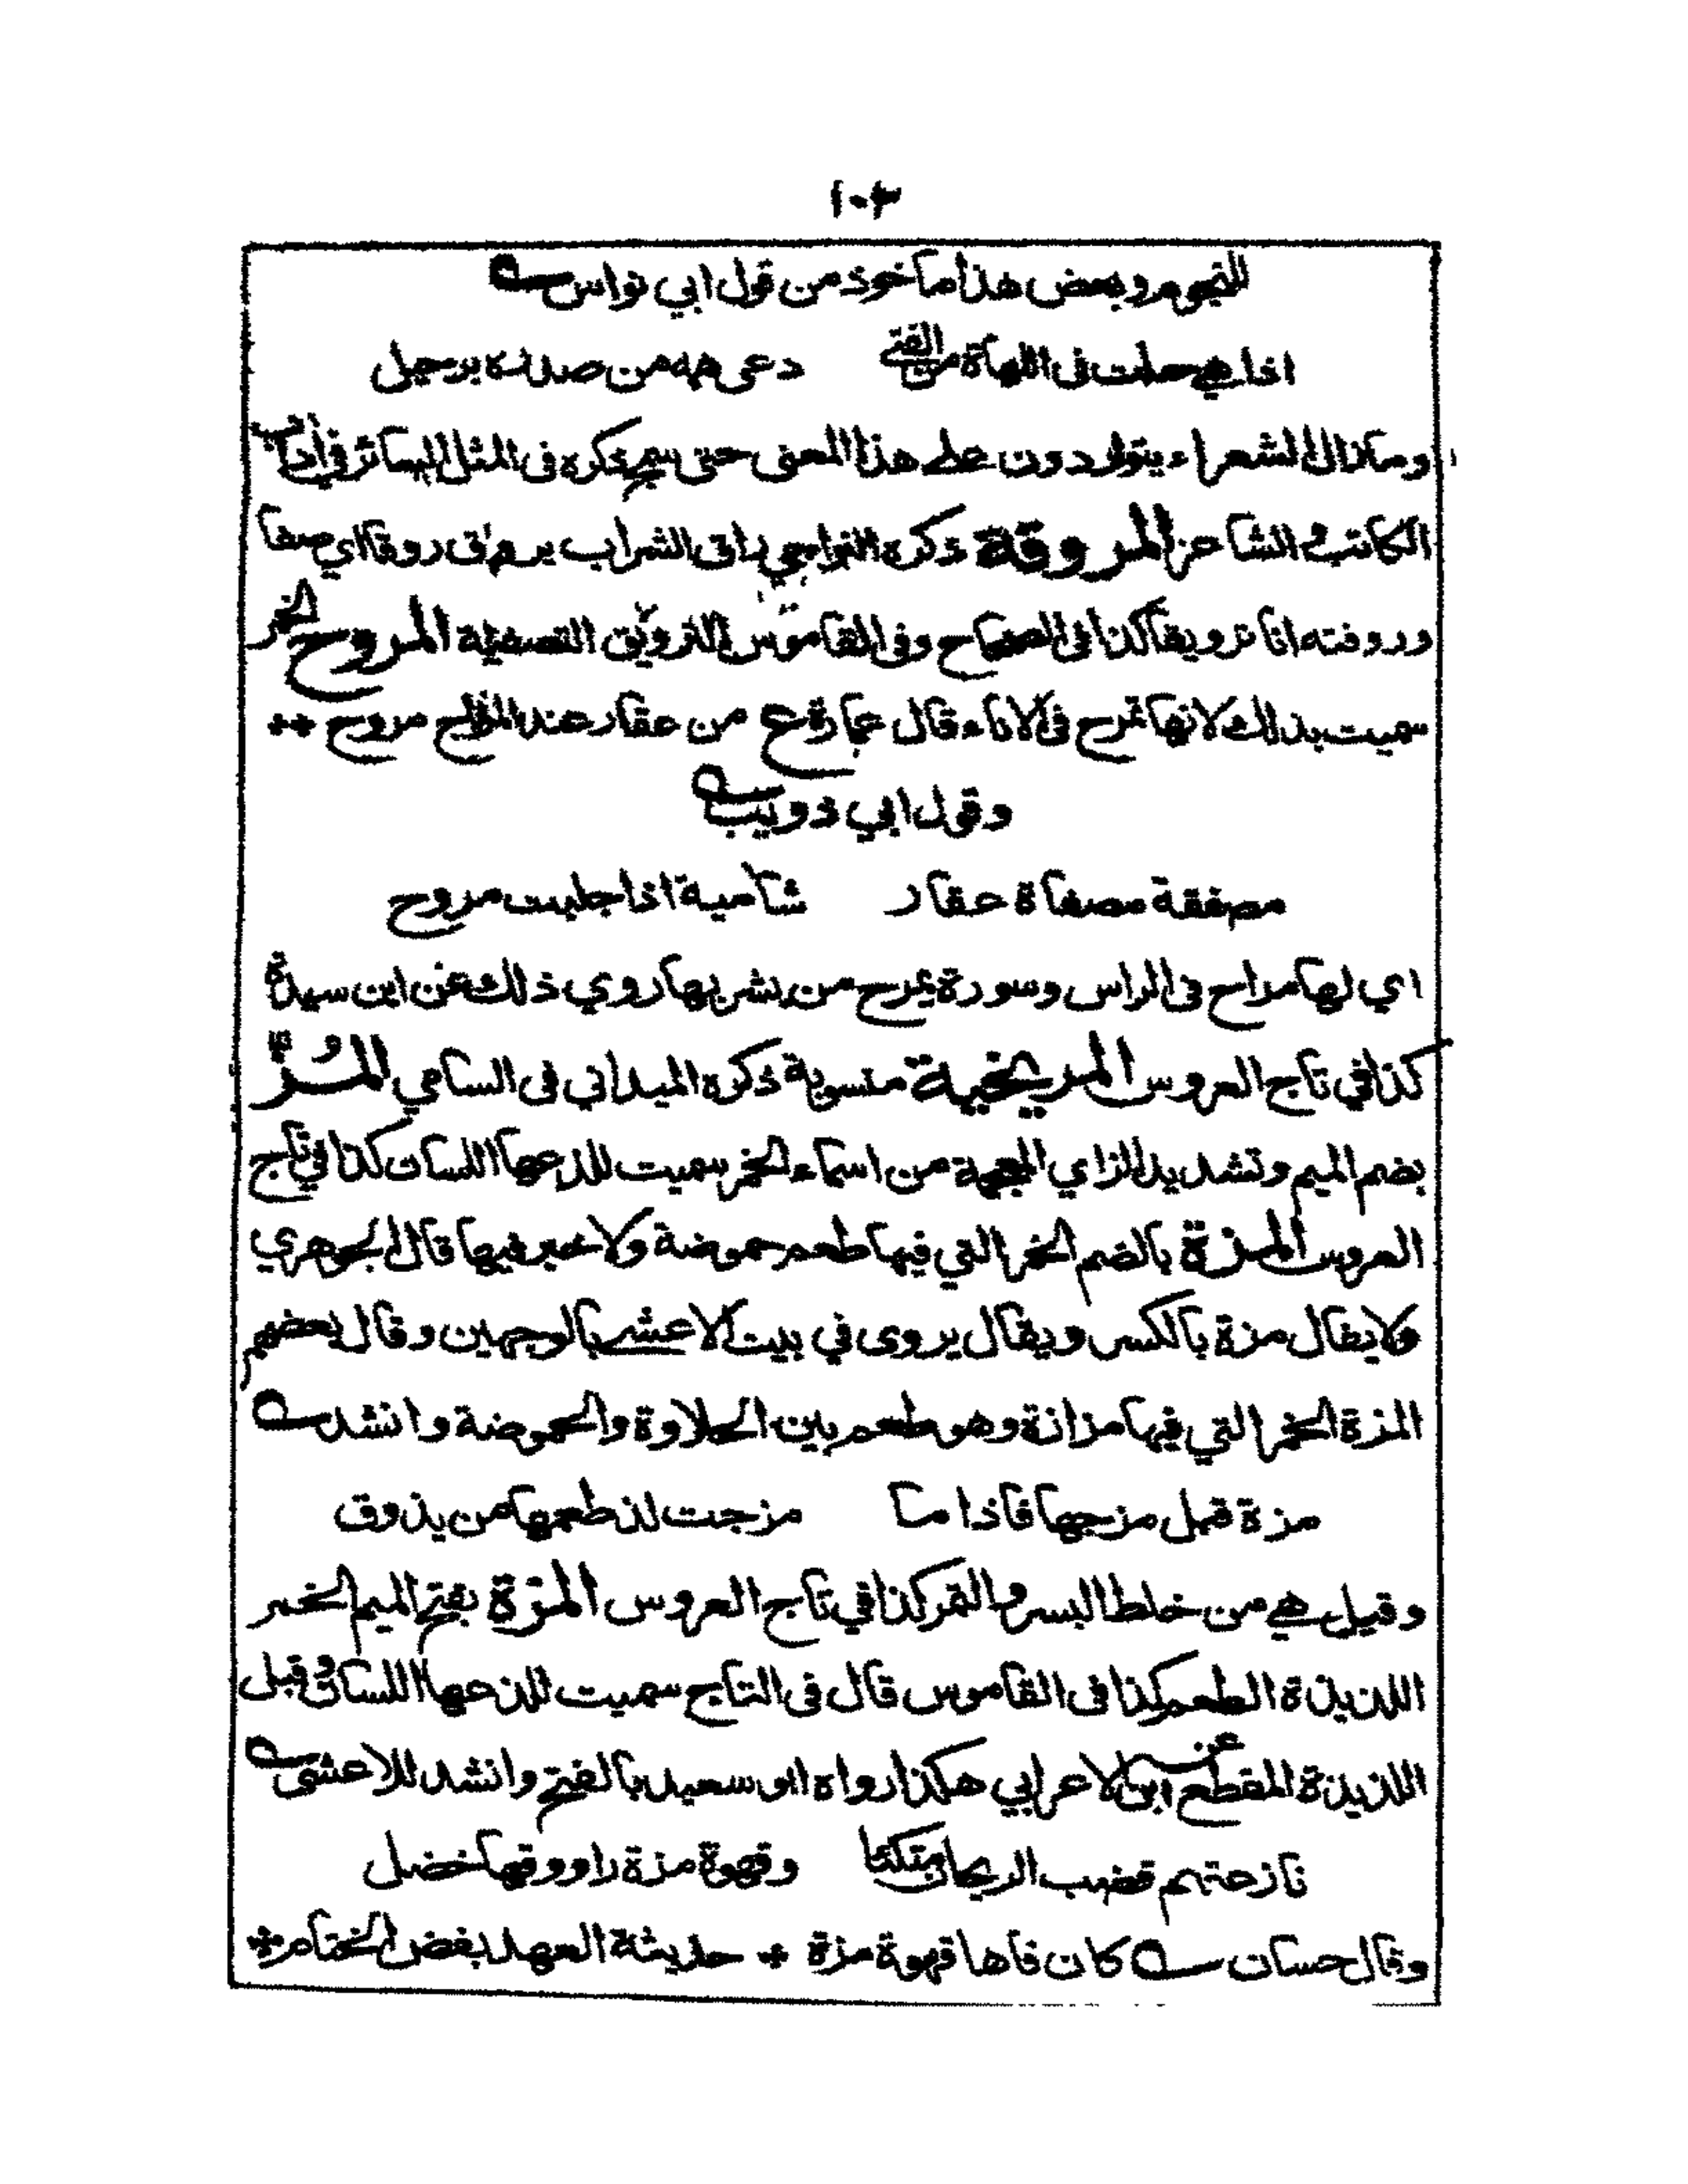 ١٠٣
للنجوم وبعض هذا مأخوذ من قول ابي نواس
اذا هي حلت في اللهاة من الفتى دعى همه من صدره برحيل
وما زال الشعراء يتواردون على هذا المعنى حتى ذكره في المثل السائر في أداب
الكاتب والشاعر المروقة ذكره النواجي راق الشراب يروق روقا اي صفا
وروقته انا ترويقا كذا في الصحاح وفي القاموس الترويق التصفية المروح الخمر
سميت بذلك لانها تمرح في الاناء قال عمارة ع من عقار عند المزاج مروح
وقول ابي ذويب
مصفقة مصفاة عقار شامية اذا جليت مروح
اي لها مراح في الراس وسورة يمرح من يشربها روي ذلك عن ابن سيدة
كذا في تاج العروس المريخية منسوبة ذكره الميداني في السامي المُزّ
بضم الميم وتشديد الزاي المعجمة من اسماء الخمر سميت للذعها اللسان كذا في تاج
العروس المزة بالضم الخمر التي فيها طعم حموضة ولا خير فيها قال الجوهري
ولا يقال مزة بالكسر ويقال يروى في بيت الاعشى بالوجهين وقال بعضهم
المزة الخمر التي فيها مزازة وهو طعم بين الحلاوة والحموضة وانشد
مزة قبل مزجها فاذا ما مزجت لذ طعمها من يذوق
وقيل هي من خلط البسر والتمر كذا في تاج العروس المزة بفتح الميم الخمر
اللذيذة الطعم كذا في القاموس قال في التاج سميت للذعها اللسان وقيل
اللذيذة المقطع عن ابن الاعرابي هكذا رواه ابو سعيد بالفتح وانشد للاعشى
نازعتهم قضب الريحان متكئا وقهوة مزة راووقها خضل
وقال حسان كان فاها قهوة مزة * حديثة العهد بفض الختام *